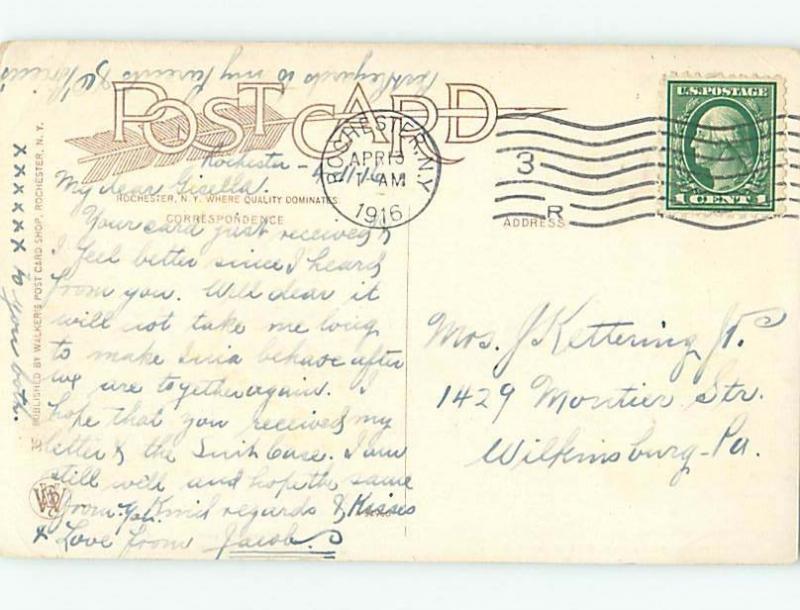 Best Regards to my Parents &
POST CARD
ROCHESTER, N.Y.
APR 13
1 AM
1916
3
R
U.S. POSTAGE
1 CENT 1
Rochester -
My dear Gisella.
ROCHESTER, N.Y. WHERE QUALITY DOMINATES
CORRESPONDENCE
ADDRESS
Your card just received &
I feel better since I heard
from you. Well dear it
will not take me long
to make behave after
we are together again. I
hope that you received my
letter & the Suit Case. I am
still well and hope the same
from you. Kind regards & Kisses
& Love from Jacob.
xxxxxxx to you both.
PUBLISHED BY WALKER'S POST CARD SHOP, ROCHESTER, N.Y.
Mrs. J Kettering Jr.
1429 Montier Str.
Wilkinsburg-Pa.